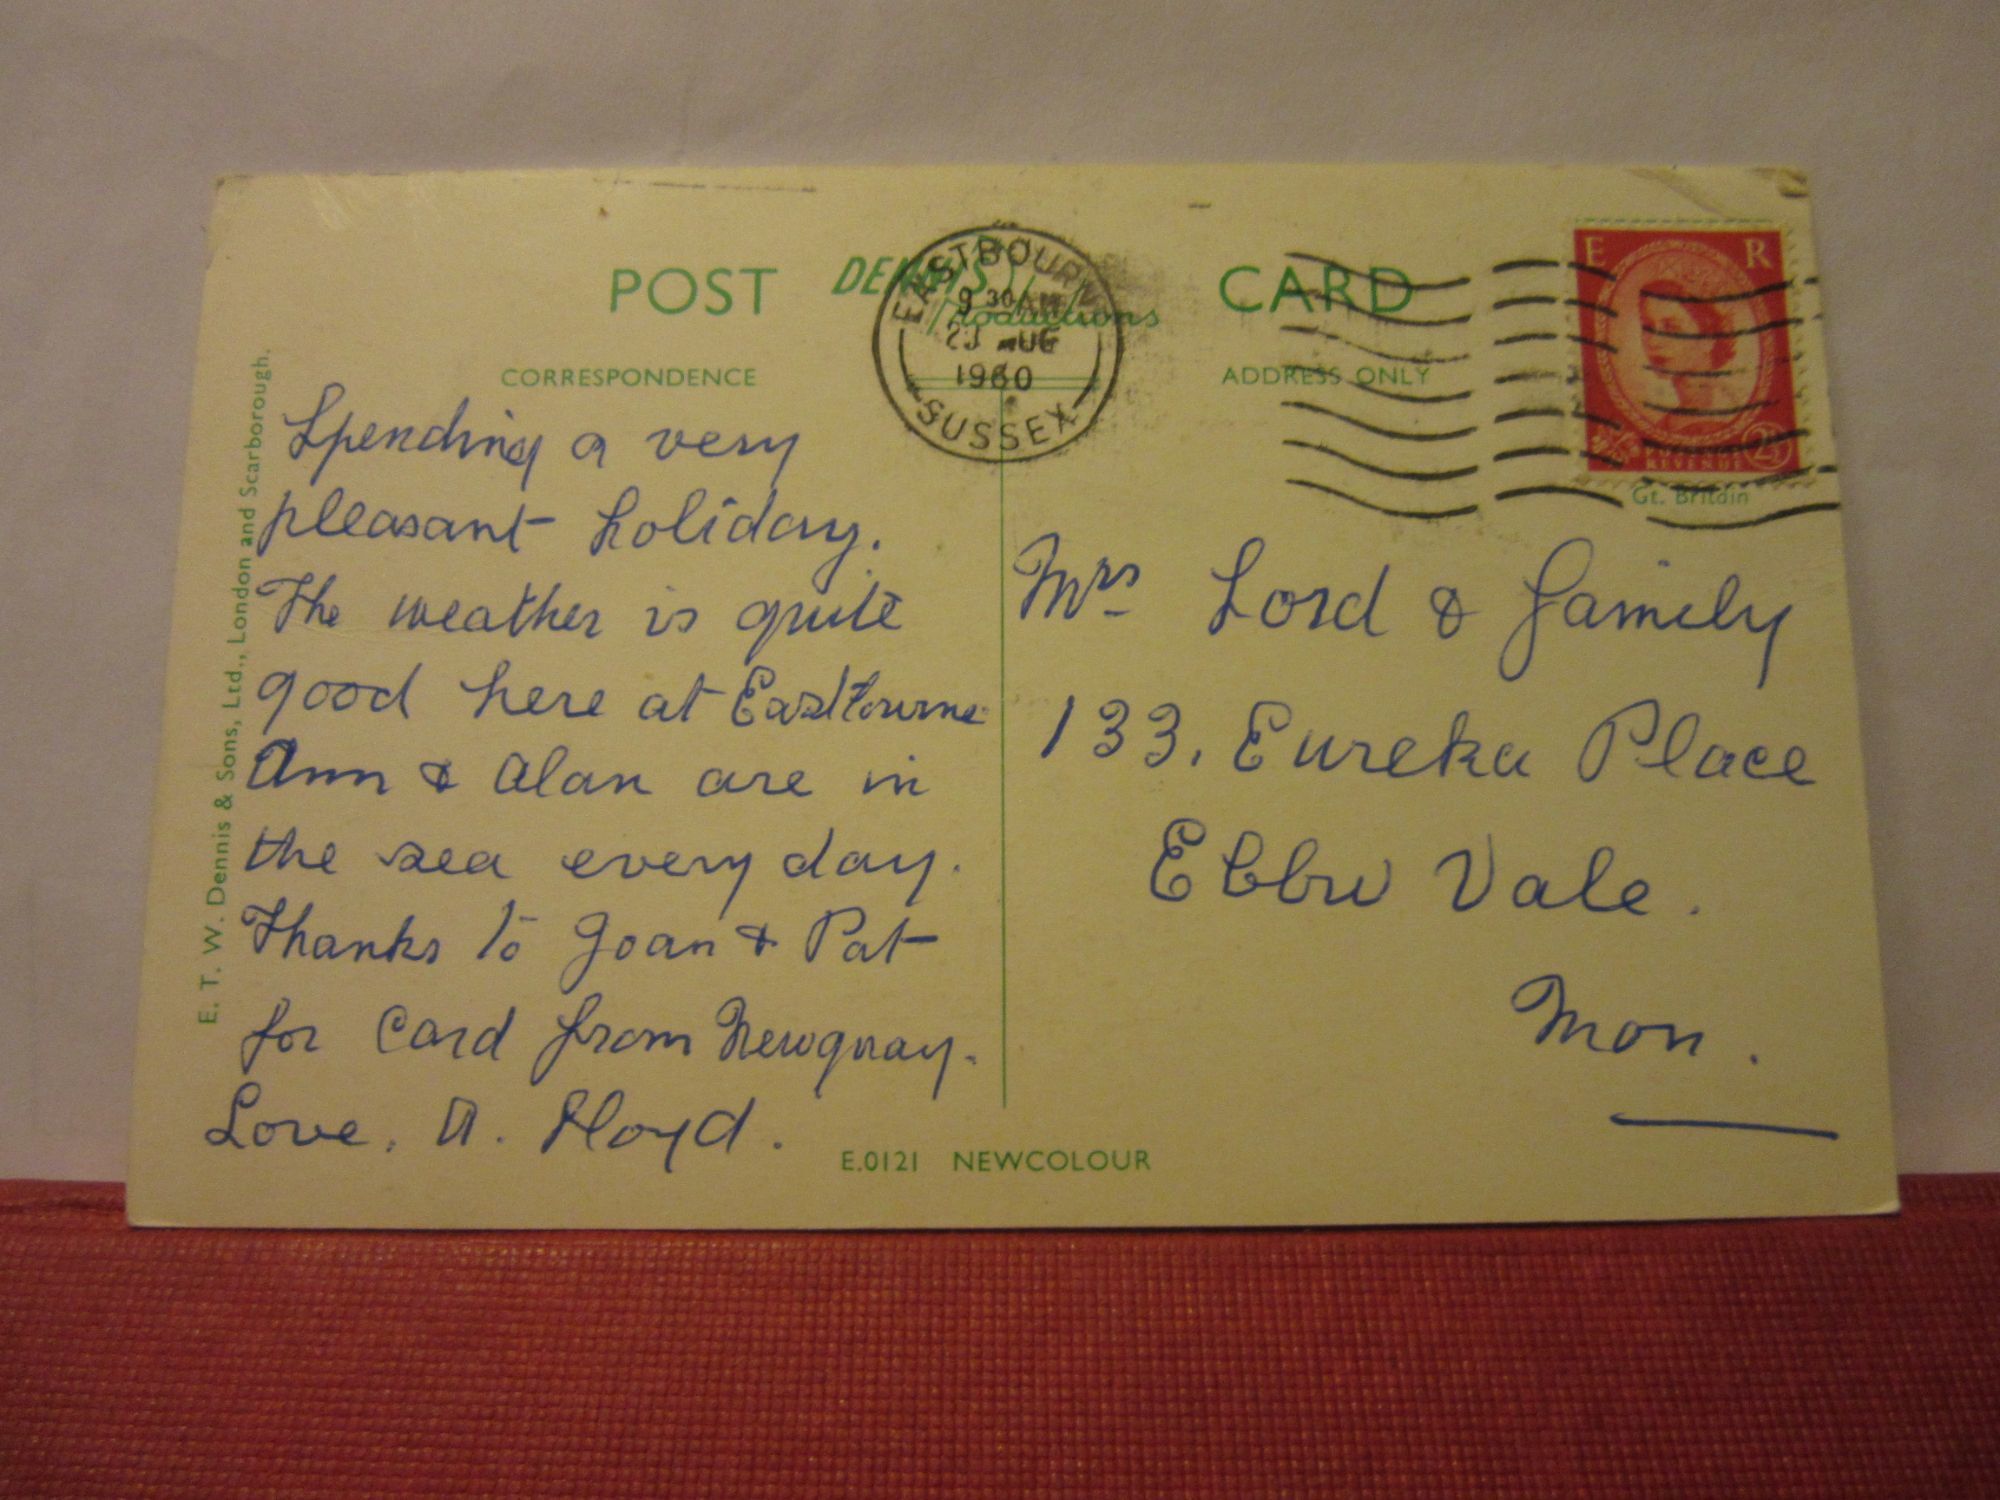 POST DENNIS Productions CARD
EASTBOURNE
9 30 AM
AUG
1960
SUSSEX
E R
POSTAGE
REVENUE
2½
Gt. Britain
CORRESPONDENCE
ADDRESS ONLY
E. T. W. Dennis & Sons, Ltd., London and Scarborough.
Spending a very
pleasant holiday.
The weather is quite
good here at Eastbourne
Ann & Alan are in
the sea every day.
Thanks to Joan & Pat
for card from Newquay.
Love, A. Lloyd.
Mrs Lord & family
133, Eureka Place
Ebbw Vale.
Mon.
E.0121 NEWCOLOUR